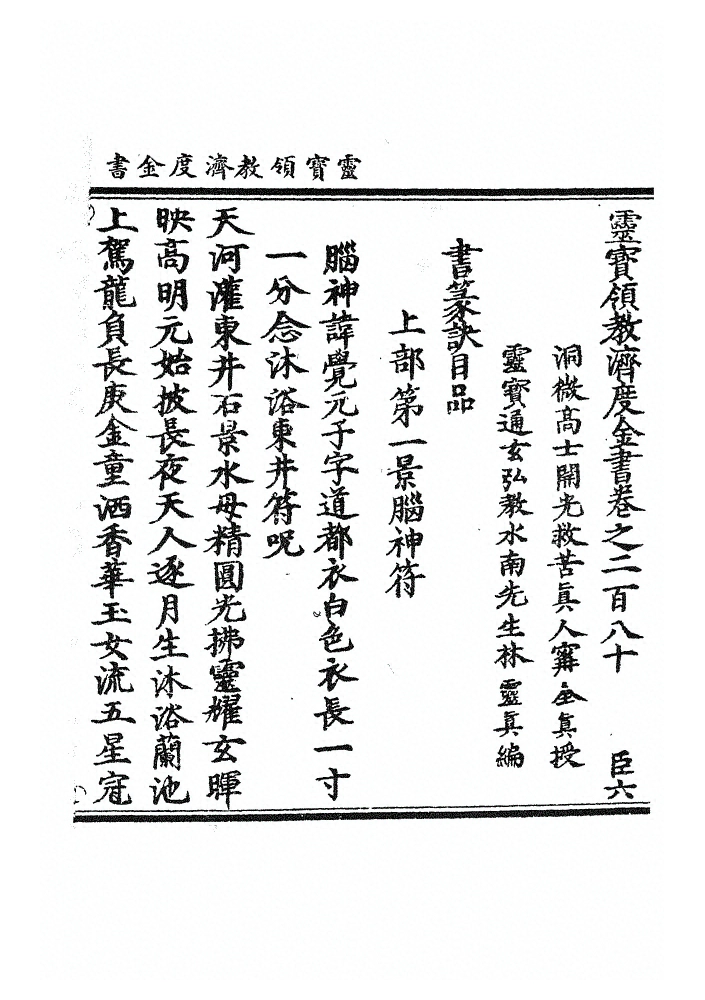 靈寶領教濟度金書
靈寶領教濟度金書卷之二百八十 臣六
洞微高士開光救苦眞人寗全眞授
靈寶通玄弘教水南先生林靈眞編
書篆訣目品
上部第一景腦神符
腦神諱覺元子字道都衣白色衣長一寸
一分念沐浴東井符呪
天河灌東井石景水母精圓光拂靈耀玄暉
映高明元始披長夜天人逐月生沐浴蘭池
上駕龍負長庚金童洒香華玉女流五星冠